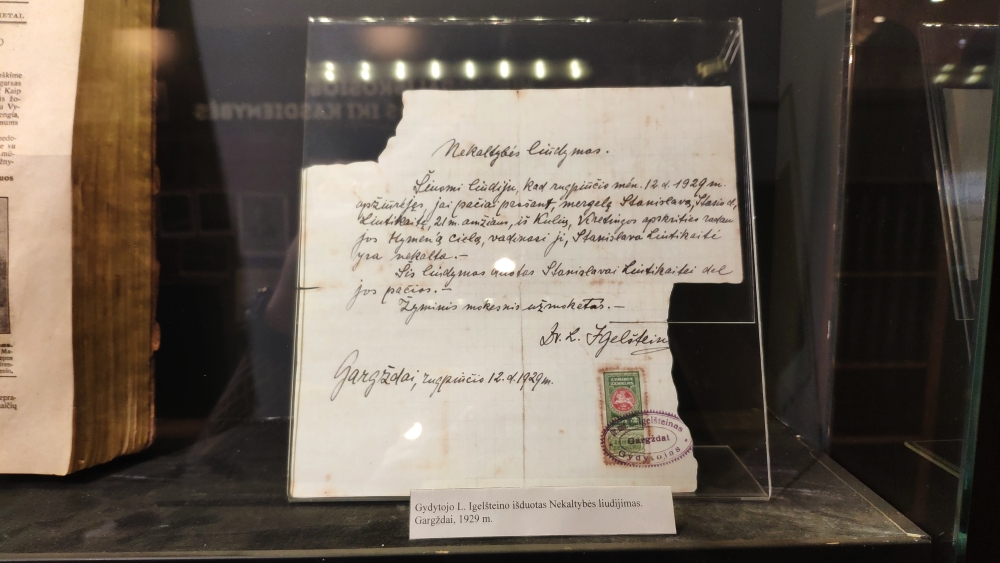 Nekaltybės liudymas.
Šiuomi liudiju, kad rugpiučio mėn. 12 d. 1929 m.
apžiurėjęs, jai pačiai prašant, mergelę Stanislavą, Stasio d.
Liutikaitę, 21 m. amžiaus, iš Kulių, Kretingos apskrities radau
jos Hymen'ą cielą, vadinasi ji, Stanislava Liutikaitė
yra nekalta.-
Šis liudymas duotas Stanislavai Liutikaitei dėl
jos pačios.-
Žyminis mokesnis užmokėtas.-
Dr. L. Igelštein
Gargždai, rugpiučio 12 d. 1929 m.
Igelšteinas
Gargždai
Gydytojas
Gydytojo L. Igelšteino išduotas Nekaltybės liudijimas.
Gargždai, 1929 m.
IKI KASDIENYBĖS